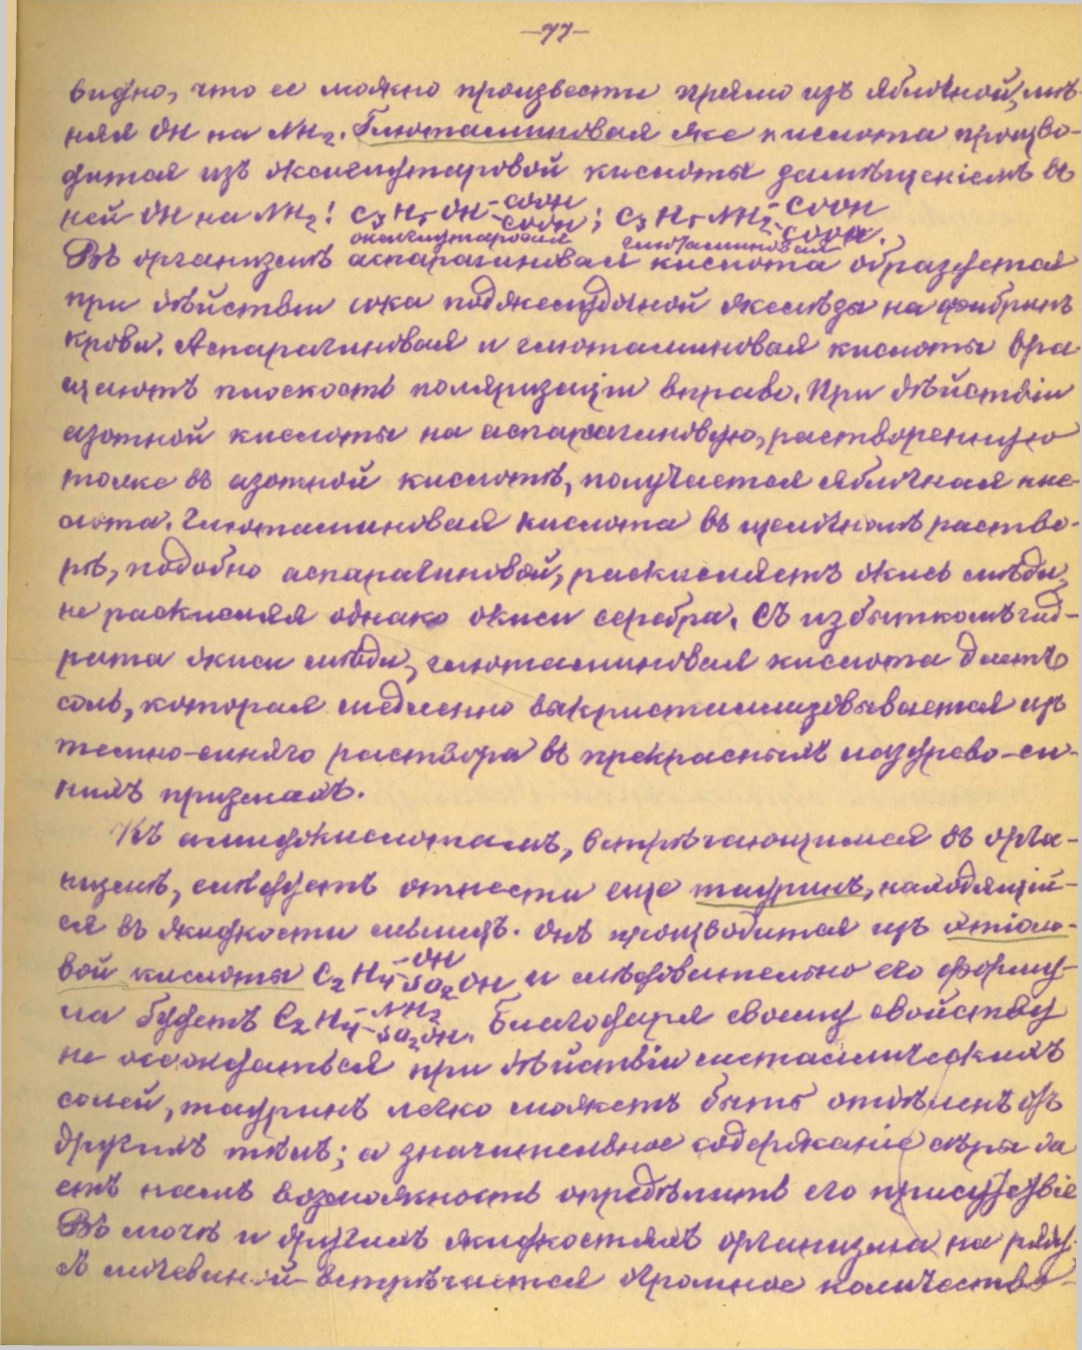 —77—
видно, что ее можно произвести прямо изъ яблочной, мѣ-
няя OH на NH₂. Глютаминовая же кислота произво-
дится изъ оксиглутаровой кислоты замѣщеніемъ въ
ней OH на NH₂: C₃H₅OH-COOH-COOH; C₃H₅NH₂-COOH-COOH.
оксиглутаровая глютаминовая
Въ организмѣ аспарагиновая кислота образуется
при дѣйствіи сока поджелудочной железы на фибринъ
крови. Аспарагиновая и глютаминовая кислоты вра-
щаютъ плоскость поляризаціи вправо. При дѣйствіи
азотной кислоты на аспарагиновую, растворенную
тоже въ азотной кислотѣ, получается яблочная кис-
лота. Глютаминовая кислота въ щелочномъ раство-
рѣ, подобно аспарагиновой, раскисляетъ окись мѣди,
не раскисляя однако окиси серебра. Съ избыткомъ гид-
рата окиси мѣди, глютаминовая кислота даетъ
соль, которая медленно выкристаллизовывается изъ
темно-синяго раствора въ прекрасныхъ лазурево-си-
нихъ призмахъ.
Къ амидокислотамъ, встрѣчающимся въ орга-
низмѣ, слѣдуетъ отнести еще тауринъ, находящій-
ся въ жидкости мышцъ. Онъ производится изъ этіоло-
вой кислоты C₂H₄-OH-SO₂OH и слѣдовательно его форму-
ла будетъ C₂H₄-NH₂-SO₂OH. Благодаря своему свойству
не осаждаться при дѣйствіи металлическихъ
солей, тауринъ легко можетъ быть отдѣленъ отъ
другихъ тѣлъ; а значительное содержаніе сѣры да
етъ намъ возможность опредѣлить его присутствіе
Въ мочѣ и другихъ жидкостяхъ организма на ряду
съ мочевиной встрѣчается огромное количество